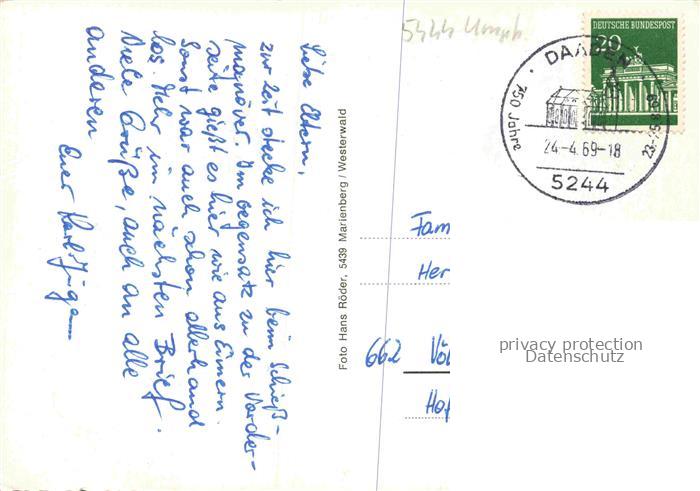 Liebe Eltern,
zur Zeit stecke ich hier beim Schieß-
manöver. Im Gegensatz zu der Vorder-
seite gießt es hier wie aus Eimern.
Sonst war auch schon allerhand
los. Mehr im nächsten Brief.
Viele Grüße, auch an alle
anderen
Euer Karl Jürgen
Foto Hans Röder, 5439 Marienberg / Westerwald
5244
DEUTSCHE BUNDESPOST
20
DAADEN
750 Jahre
24-4.69-18
5244
Fam
Her
662 Völ
Hof
privacy protection
Datenschutz